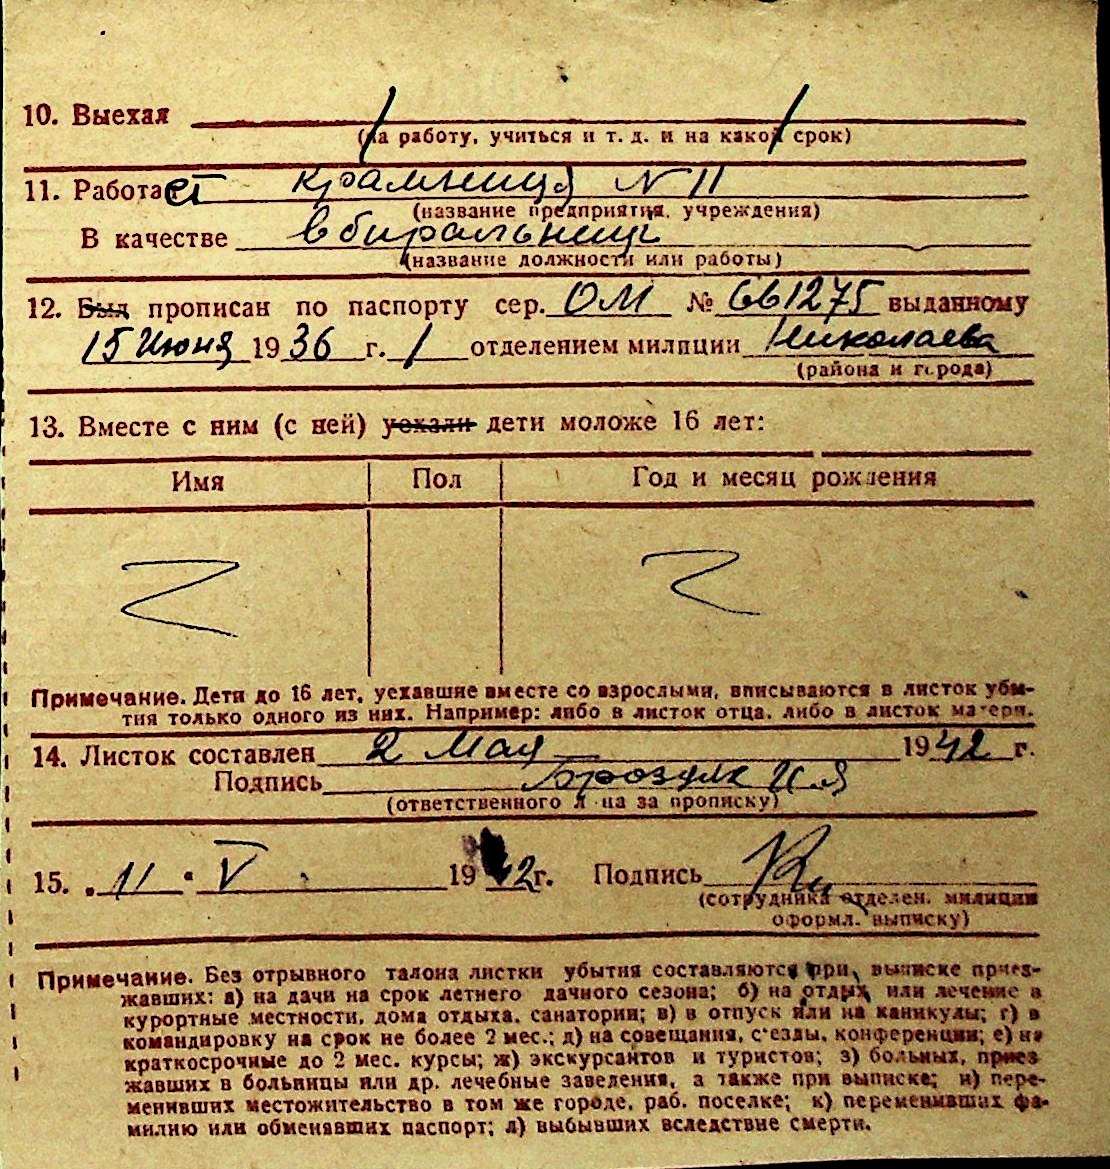 10. Выехал
(на работу, учиться и т. д. и на какой срок)
11. Работает крамниця N 11
(название предприятия, учреждения)
В качестве вбиральниці
(название должности или работы)
12. Был прописан по паспорту сер. ОМ № 661275 выданному
15 Июня 1936 г. 1 отделением милиции Николаева
(района и города)
13. Вместе с ним (с ней) уехали дети моложе 16 лет:
Имя Пол Год и месяц рождения
Z Z
Примечание. Дети до 16 лет, уехавшие вместе со взрослыми, вписываются в листок убы-
тия только одного из них. Например: либо в листок отца, либо в листок матери.
14. Листок составлен 2 Мая 1942 г.
Подпись
(ответственного лица за прописку)
15. 11 V 1942 г. Подпись
(сотрудника отделен. милиции
оформл. выписку)
Примечание. Без отрывного талона листки убытия составляются при выписке приез-
жавших: а) на дачи на срок летнего дачного сезона; б) на отдых или лечение в
курортные местности, дома отдыха, санатории; в) в отпуск или на каникулы; г) в
командировку на срок не более 2 мес.; д) на совещания, съезды, конференции; е) на
краткосрочные до 2 мес. курсы; ж) экскурсантов и туристов; з) больных, приез
жавших в больницы или др. лечебные заведения, а также при выписке; и) пере-
менивших местожительство в том же городе, раб. поселке; к) переменивших фа-
милию или обменявших паспорт; л) выбывших вследствие смерти.